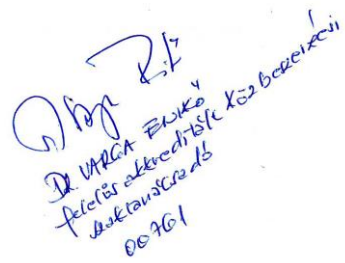 DR. VARGA ENIKŐ
felelős akkreditált közbeszerzési
szaktanácsadó
00761